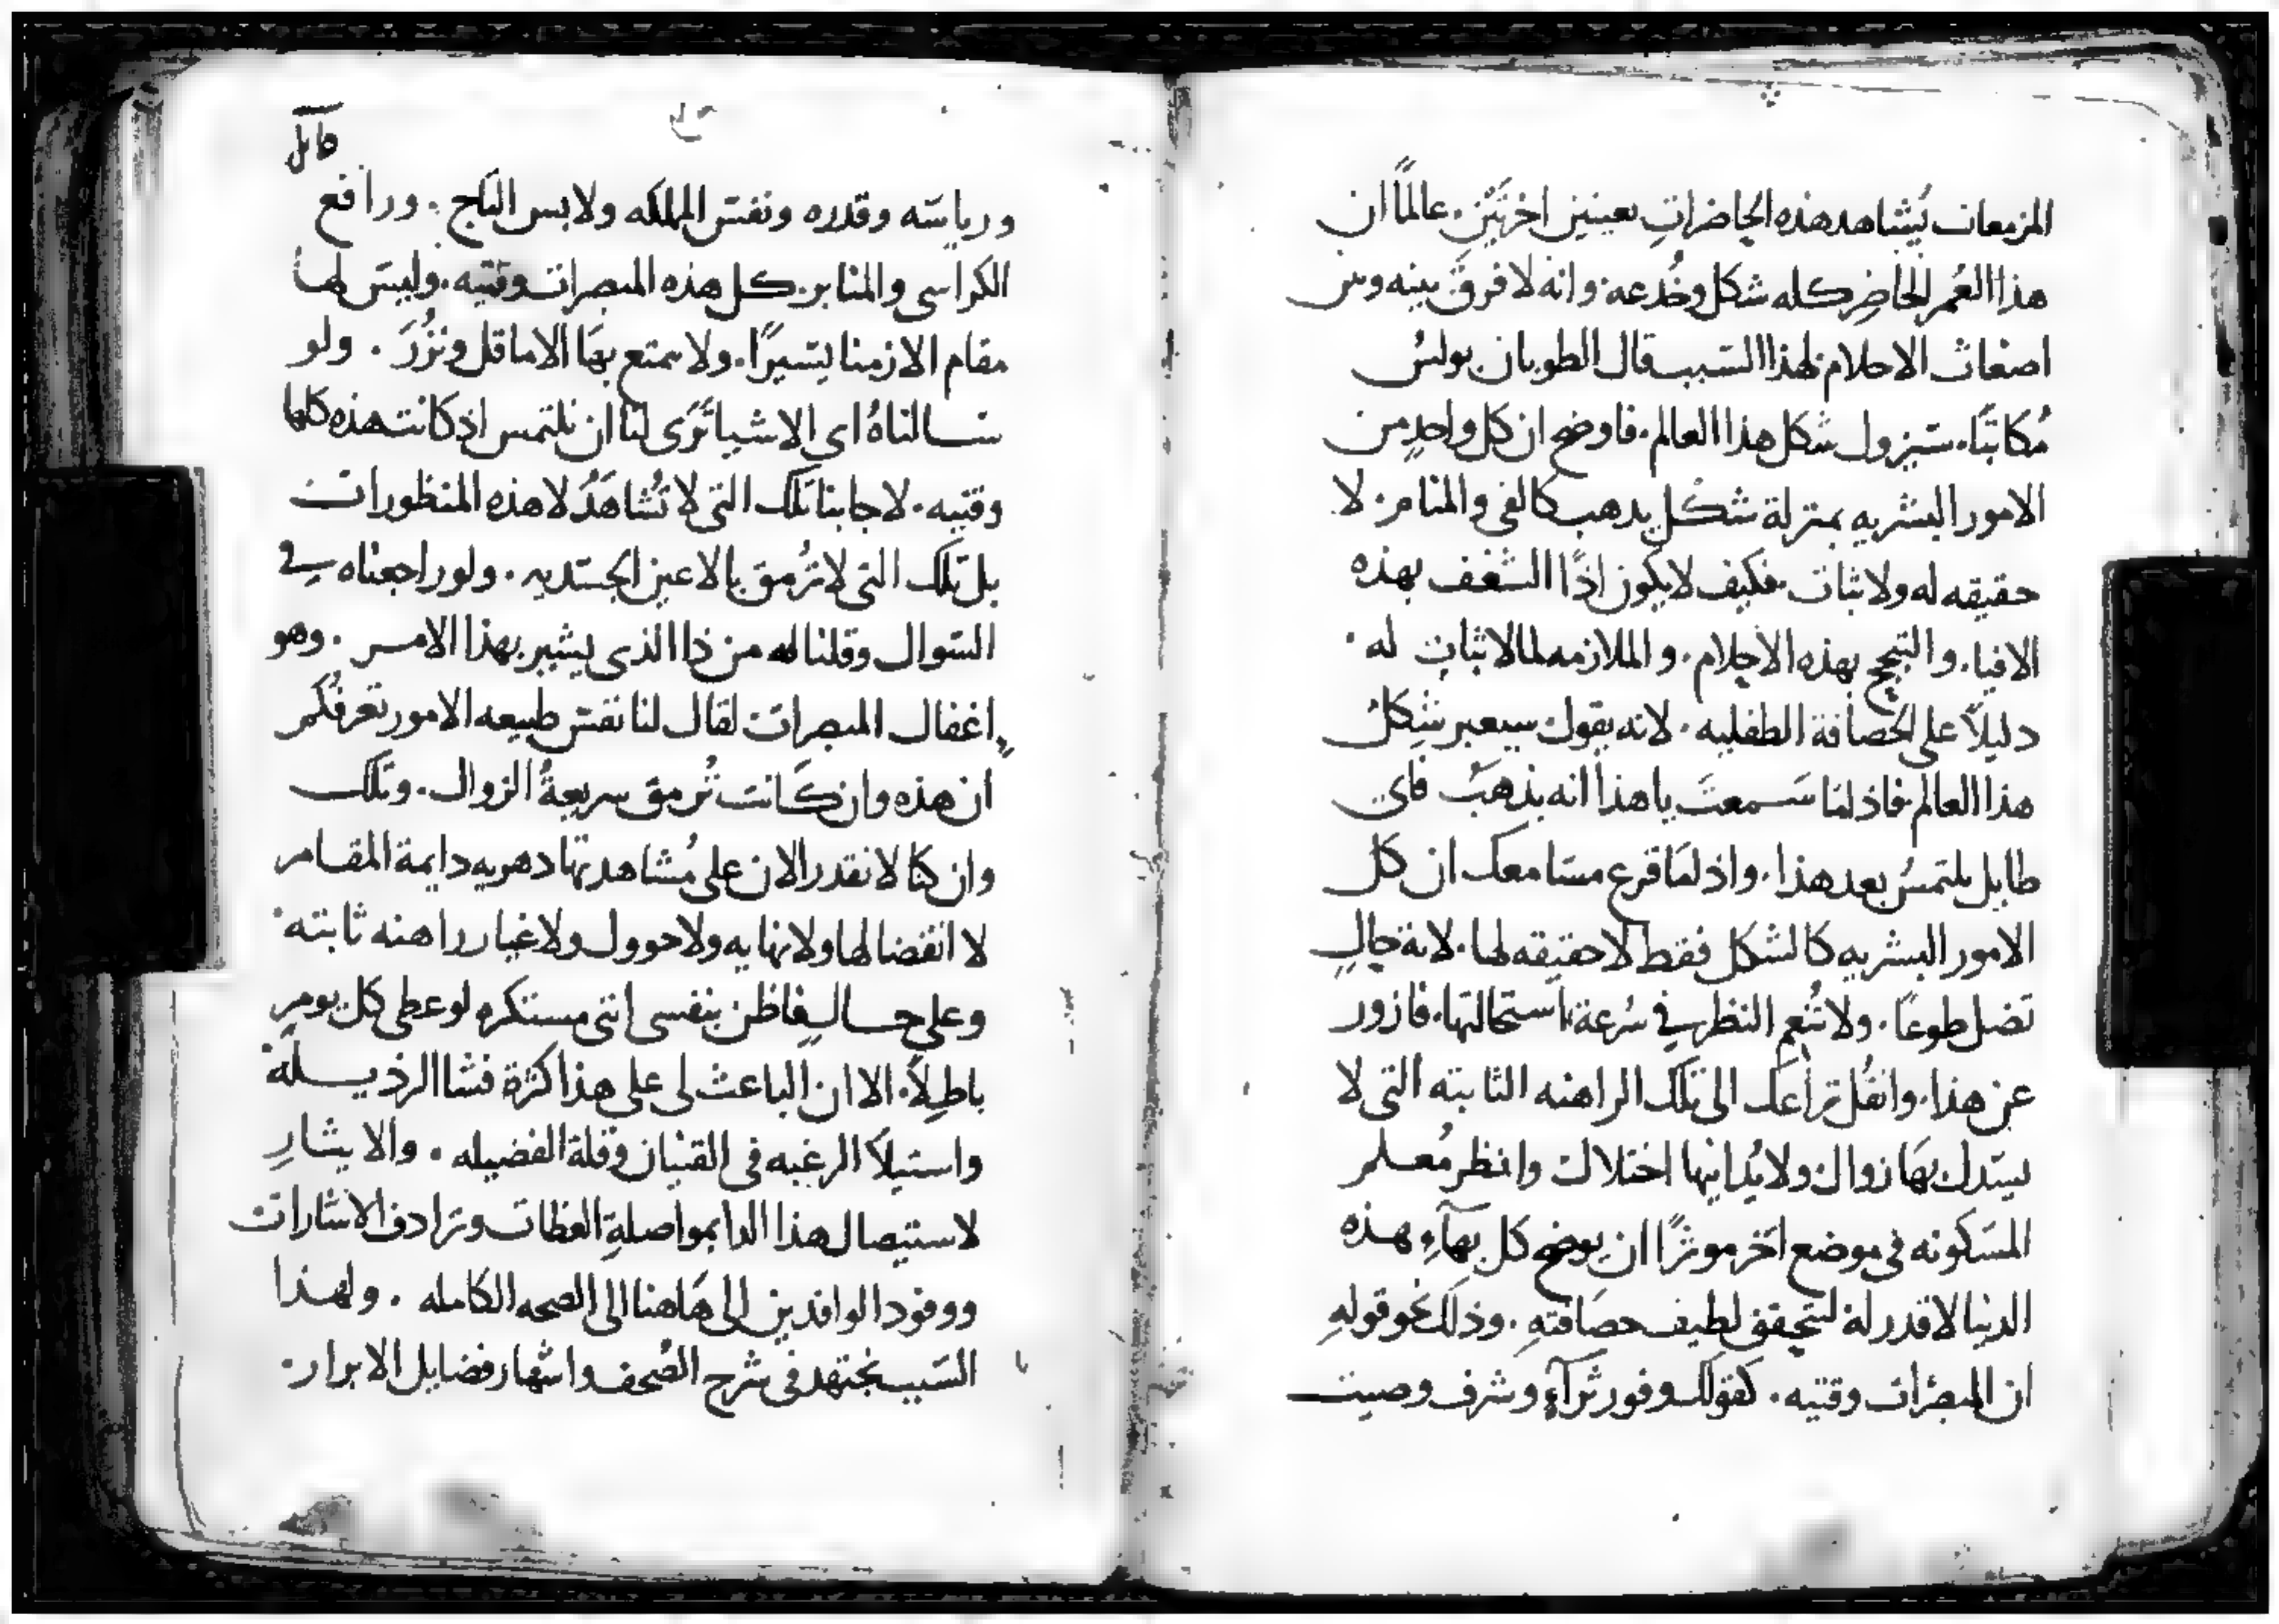 المزمعات يُشاهد هذه الحاضراتِ بعينين اخرَتَيْنِ. عالمًا ان
هذا العُمر الحاضِر كله شكل وخُدعه. وانه لا فرق بينه وبين
اضغاث الاحلام لهذا السبب قال الطوبان بولس
مُكاتبًا. ستزول شكل هذا العالم. فاوضح ان كل واحدٍ من
الامور البشريه بمنزلة شكل يذهب كالفى والمنام. لا
حقيقه له ولا ثبات فكيف لا يكون اذًا الشغف بهذه
الافيا. والتبجح بهذه الاحلام. والملازمه لما لا ثبات له.
دليلاً على الحصافة الطفليه. لانه يقول سيعبر شكل
هذا العالم فاذ لمَا سَمعتَ يا هذا انه يذهبُ فاى
طايل يلتمسُ بعد هذا. واذ لمَا قرع مسَامعك ان كل
الامور البشريه كالشكل فقط لا حقيقه لها. لاية حالٍ
تضل طوعًا. ولا تُنعم النظر فى سُرعة استحالتها. فازور
عن هذا. وانقُل نزاعك الى تلك الراهنه الثابته التى لا
يستدل بهَا زوال ولا يُدانيها اختلال وانظر مُعلم
المسَكونه فى موضع اخر موثرًا ان يوضح كل بهآءِ هذه
الدنيا لا قدر له لتحقق لطيف حصَافتهِ. وذلك نحو قولهِ
ان المبصَرات وقتيه. كقولك وفور ثرآءٍ وشرف وصيت
قابل
ورياسَته وقدره ونفس المملكه ولابس التاج. ورافع
الكراسى والمنابر. كل هذه المبصرات وقتيه. وليسَ لها
مقام الا زمنا يسَيرًا. ولا يمتع بهَا الا ما قل ونَزُرَ. ولو
سَالناهُ اى الاشيا تَرَى لنا ان نلتمس اذ كانت هذه كلها
وقتيه. لاجابنا تلك التى لا تُشاهَدُ لا هذه المنظورات
بل تلك التى لا تُرمق بالاعين الجسَديه. ولو راجعناه فى
السَوال وقلنا له من ذا الذى يشير بهذا الامر. وهو
اغفال المبصرات لقال لنا نفس طبيعه الامور تعرفُكم
ان هذه وان كَانت تُرمق سريعةُ الزوال. وتلك
وان كنا لا نقدر الان على مُشاهدتها دهريه دايمة المقام
لا انقضا لها ولا نهايه ولا حوول ولا غيار راهنه ثابته.
وعلى حالٍ فاظن بنفسى اننى مستكره لوعظى كل يومٍ
باطلاً. الا ان الباعث لى على هذا كثرة فشا الرذيله.
واستيلاَ الرغبه فى القنيان وقلة الفضيله. والايثارِ
لاستيصال هذا الدا بمواصلةِ العظات وترادف الاشارات
ووفود الوافدين الى هَاهنا الى الصحه الكامله. ولهذا
السَبب نجتهد فى شرح الصُحف واشهار فضايل الابرار.